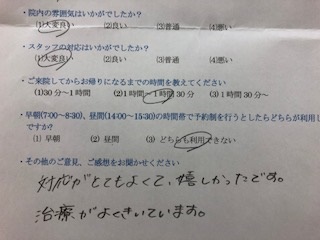 ・院内の雰囲気はいかがでしたか？
(1)大変良い (2)良い (3)普通 (4)悪い
・スタッフの対応はいかがでしたか？
(1)大変良い (2)良い (3)普通 (4)悪い
・ご来院してからお帰りになるまでの時間を教えてください
(1)30分～1時間 (2)1時間～1時間30分 (3)1時間30分～
・早朝(7:00～8:30)、昼間(14:00～15:30)の時間帯で予約制を行うとしたらどちらが利用し
ですか？
(1) 早朝 (2) 昼間 (3) どちらも利用できない
・その他のご意見、ご感想をお聞かせください
対応がとてもよくて、嬉しかったです。
治療がよくきいています。